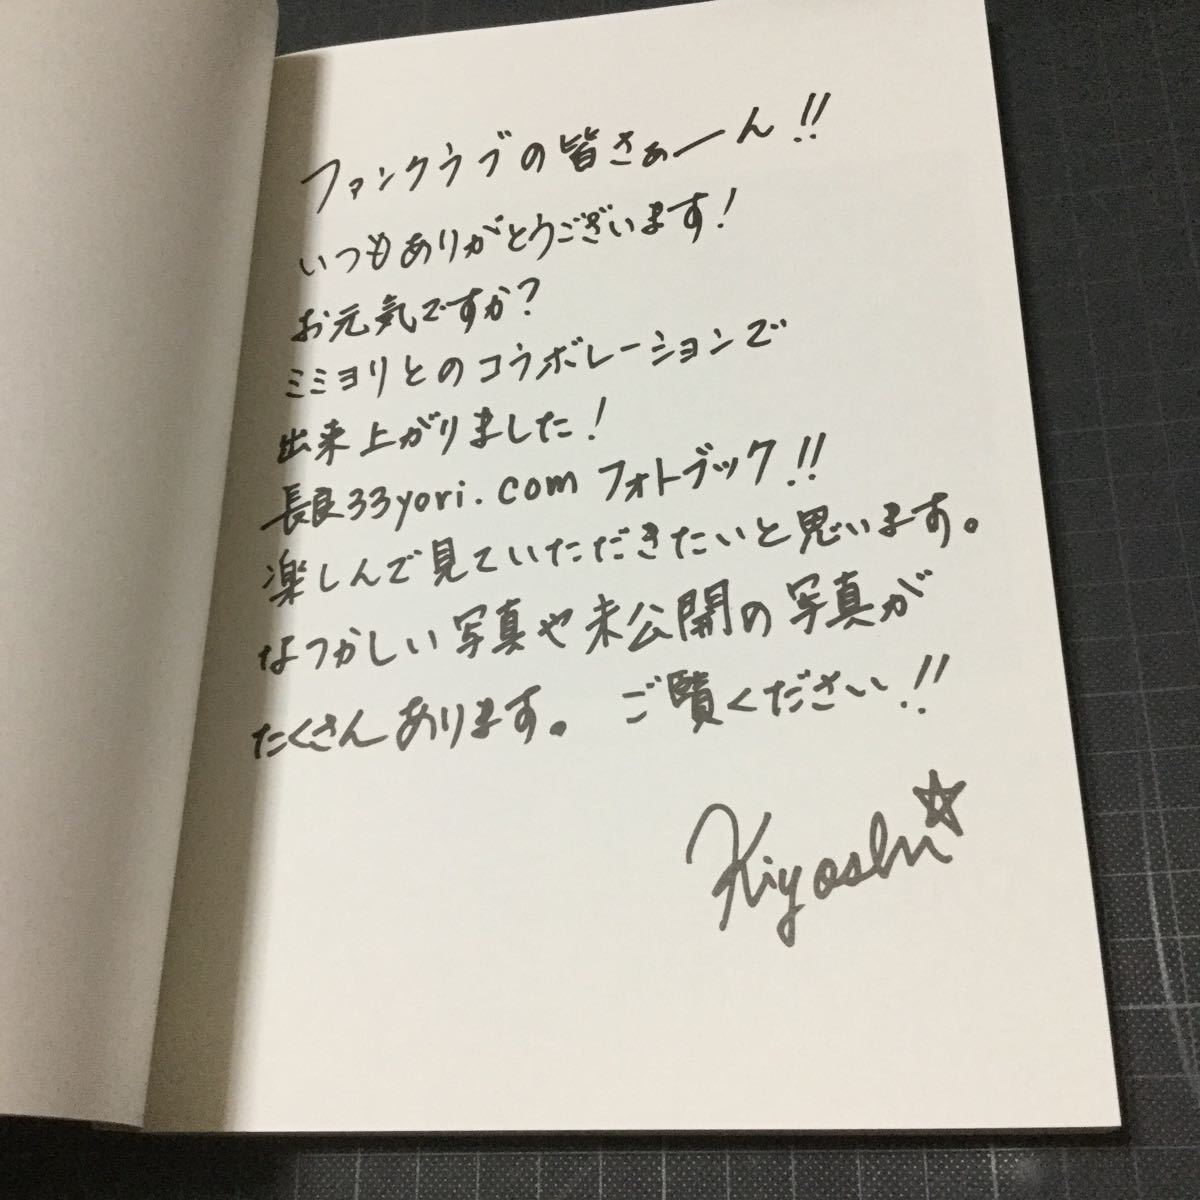 ファンクラブの皆さぁーん!!
いつもありがとうございます!
お元気ですか?
ミミヨリとのコラボレーションで
出来上がりました!
長良33yori.comフォトブック!!
楽しんで見ていただきたいと思います。
なつかしい写真や未公開の写真が
たくさんあります。 ご覧ください!!
Kiyoshi☆